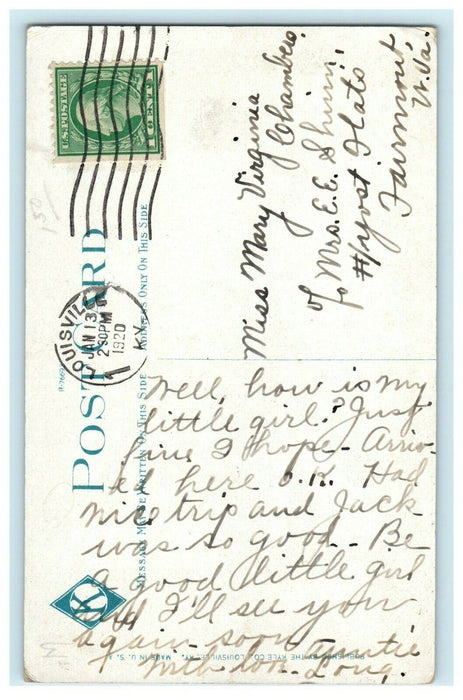 U.S. POSTAGE
1 CENT 1
LOUISVILLE
JAN 13
2 30 PM
1920
KY.
POST CARD
ADDRESS ONLY ON THIS SIDE
MESSAGE MAY BE WRITTEN ON THIS SIDE
Miss Mary Virginia
Chambers
℅ Mrs. E. E. Shinn
#1 Yost Flats
Fairmont
W. Va.
Well, how is my
little girl? Just
fine I hope. Arriv-
ed here O.K. Had
nice trip and Jack
was so good. Be
a good little girl
and I'll see you
again soon
with love
K
PUBLISHED BY THE KYLE CO., LOUISVILLE, KY.
MADE IN U. S. A.